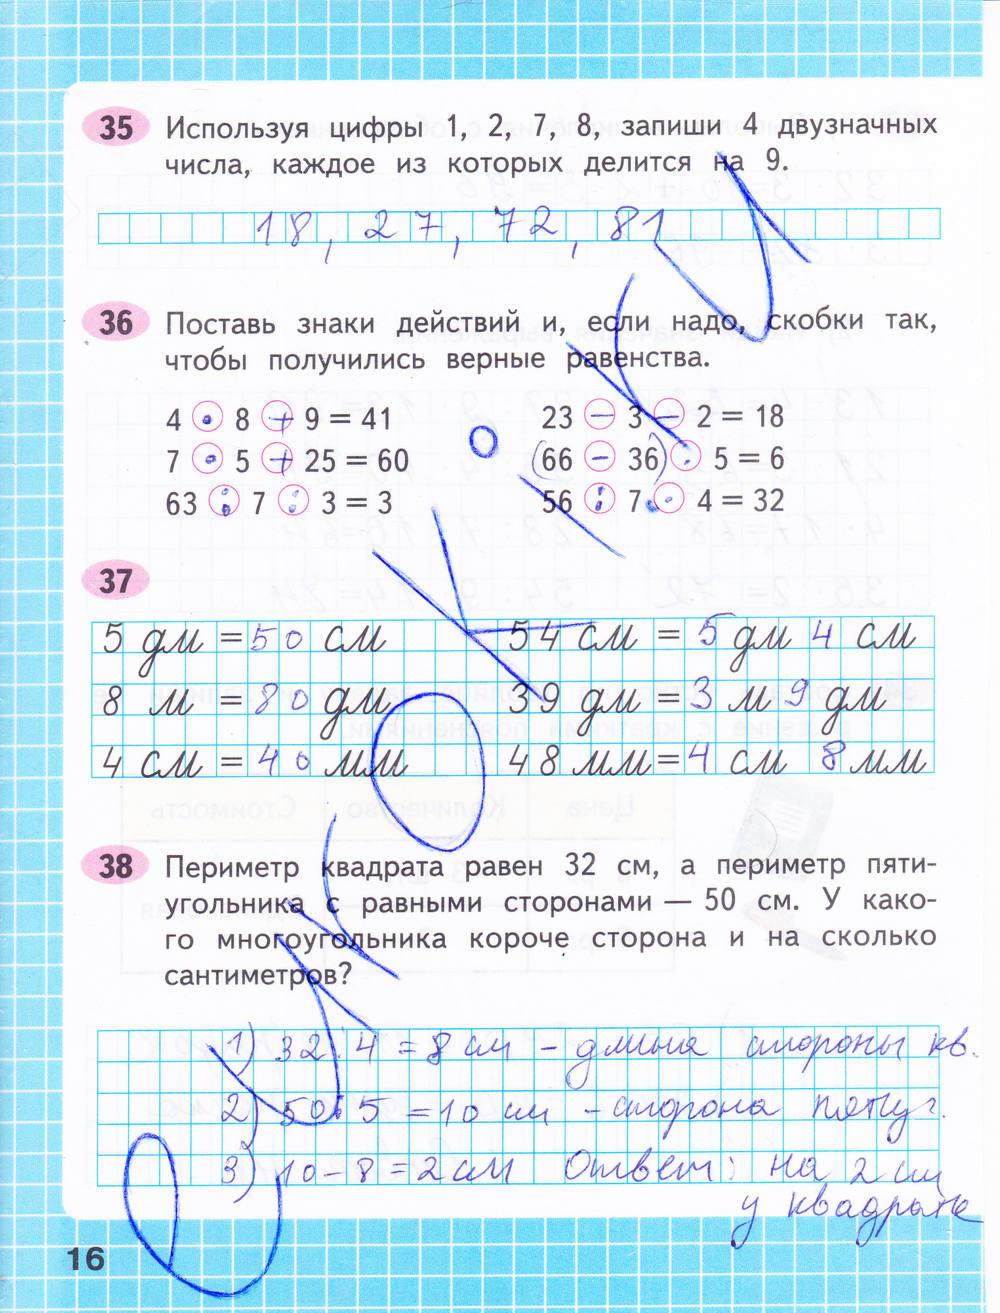 35 Используя цифры 1, 2, 7, 8, запиши 4 двузначных
числа, каждое из которых делится на 9.
18, 27, 72, 81
36 Поставь знаки действий и, если надо, скобки так,
чтобы получились верные равенства.
4 · 8 + 9 = 41 23 − 3 − 2 = 18
7 · 5 + 25 = 60 (66 − 36) : 5 = 6
63 : 7 : 3 = 3 56 : 7 · 4 = 32
37
5 дм = 50 см 54 см = 5 дм 4 см
8 м = 80 дм 39 дм = 3 м 9 дм
4 см = 40 мм 48 мм = 4 см 8 мм
38 Периметр квадрата равен 32 см, а периметр пяти-
угольника с равными сторонами — 50 см. У како-
го многоугольника короче сторона и на сколько
сантиметров?
1) 32 : 4 = 8 см - длина стороны кв.
2) 50 : 5 = 10 см - сторона пятиуг.
3) 10 - 8 = 2 см Ответ: на 2 см
у квадрата
16